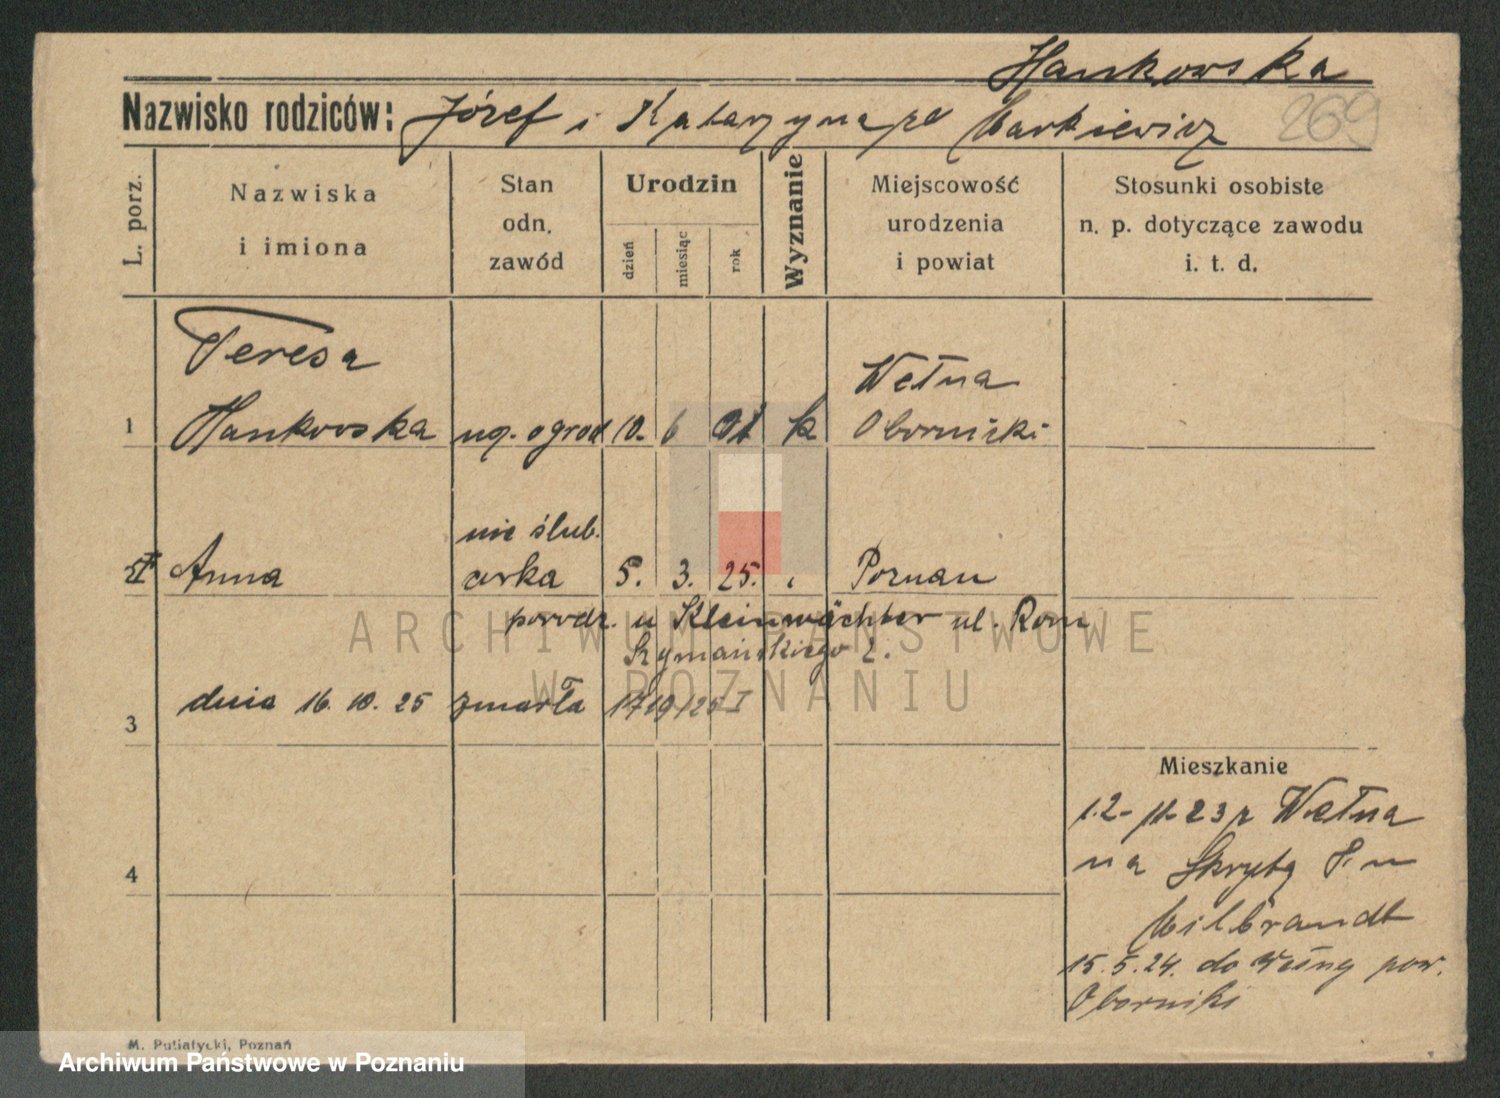 Hankowska
Nazwisko rodziców: Józef i Katarzyna zd Markiewicz
269
L. porz.
Nazwiska
i imiona
Stan
odn.
zawód
Urodzin
dzień
miesiąc
rok
Wyznanie
Miejscowość
urodzenia
i powiat
Stosunki osobiste
n. p. dotyczące zawodu
i. t. d.
Teresa
Wełna
1 Hankowska ogrod 10. 6 01 k Obornicki
nie ślub.
2 Anna córka 5. 3. 25. Poznan
u Kleinwächter ul. Rom
Szymańskiego 2.
dnia 16. 10. 25 zmarła
3
Mieszkanie
12-11-23 z Wełna
na Skrytą
4
Wilbrandt
15. 5. 24. do Wełny pow.
Oborniki
M. Putiatycki, Poznań
ARCHIWUM PAŃSTWOWE
W POZNANIU
Archiwum Państwowe w Poznaniu